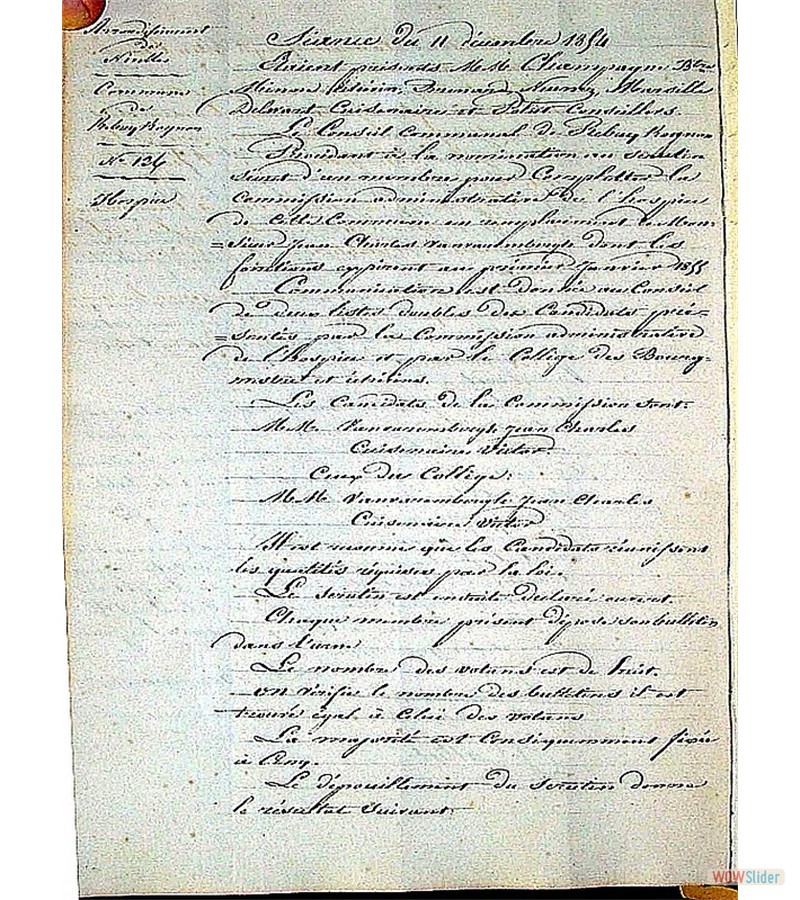 Arrondissement
de
Nivelles
Commune
de
Rebecq Rognon
N° 134
Hospice
Séance du 11 décembre 1854
Etaient présents MM. Champagne Btre
Minon échevin, Marsille
Delwart Cuisenaire et Petit Conseillers.
Le Conseil Communal de Rebecq Rognon
Procédant à la nomination au scrutin
secret d'un membre pour Completter la
Commission administrative de l'hospice
de Cette Commune en remplacement de Mon-
=sieur Jean Charles Vanvarembergh dont les
fonctions expirent au premier Janvier 1855
Communication est donnée au Conseil
de deux listes doubles des Candidats pré-
=sentés par la Commission administrative
de l'hospice et par le Collège des Bourg-
mestre et échevins.
Les Candidats de la Commission sont:
MM. Vanvarembergh Jean Charles
Cuisenaire Victor
Ceux du Collège:
MM. Vanvarembergh Jean Charles
Cuisenaire Victor
Il est reconnu que les Candidats réunissent
les qualités réquises par la loi.
Le scrutin est ensuite déclaré ouvert.
Chaque membre présent dépose son bulletin
dans l'urne
Le nombre des votans est de huit.
on vérifie le nombre des bulletins il est
trouvé égal à Celui des votans
La majorité est Conséquemment fixée
à Cinq.
Le dépouillement du scrutin donne
le résultat suivant:
WOWSlider